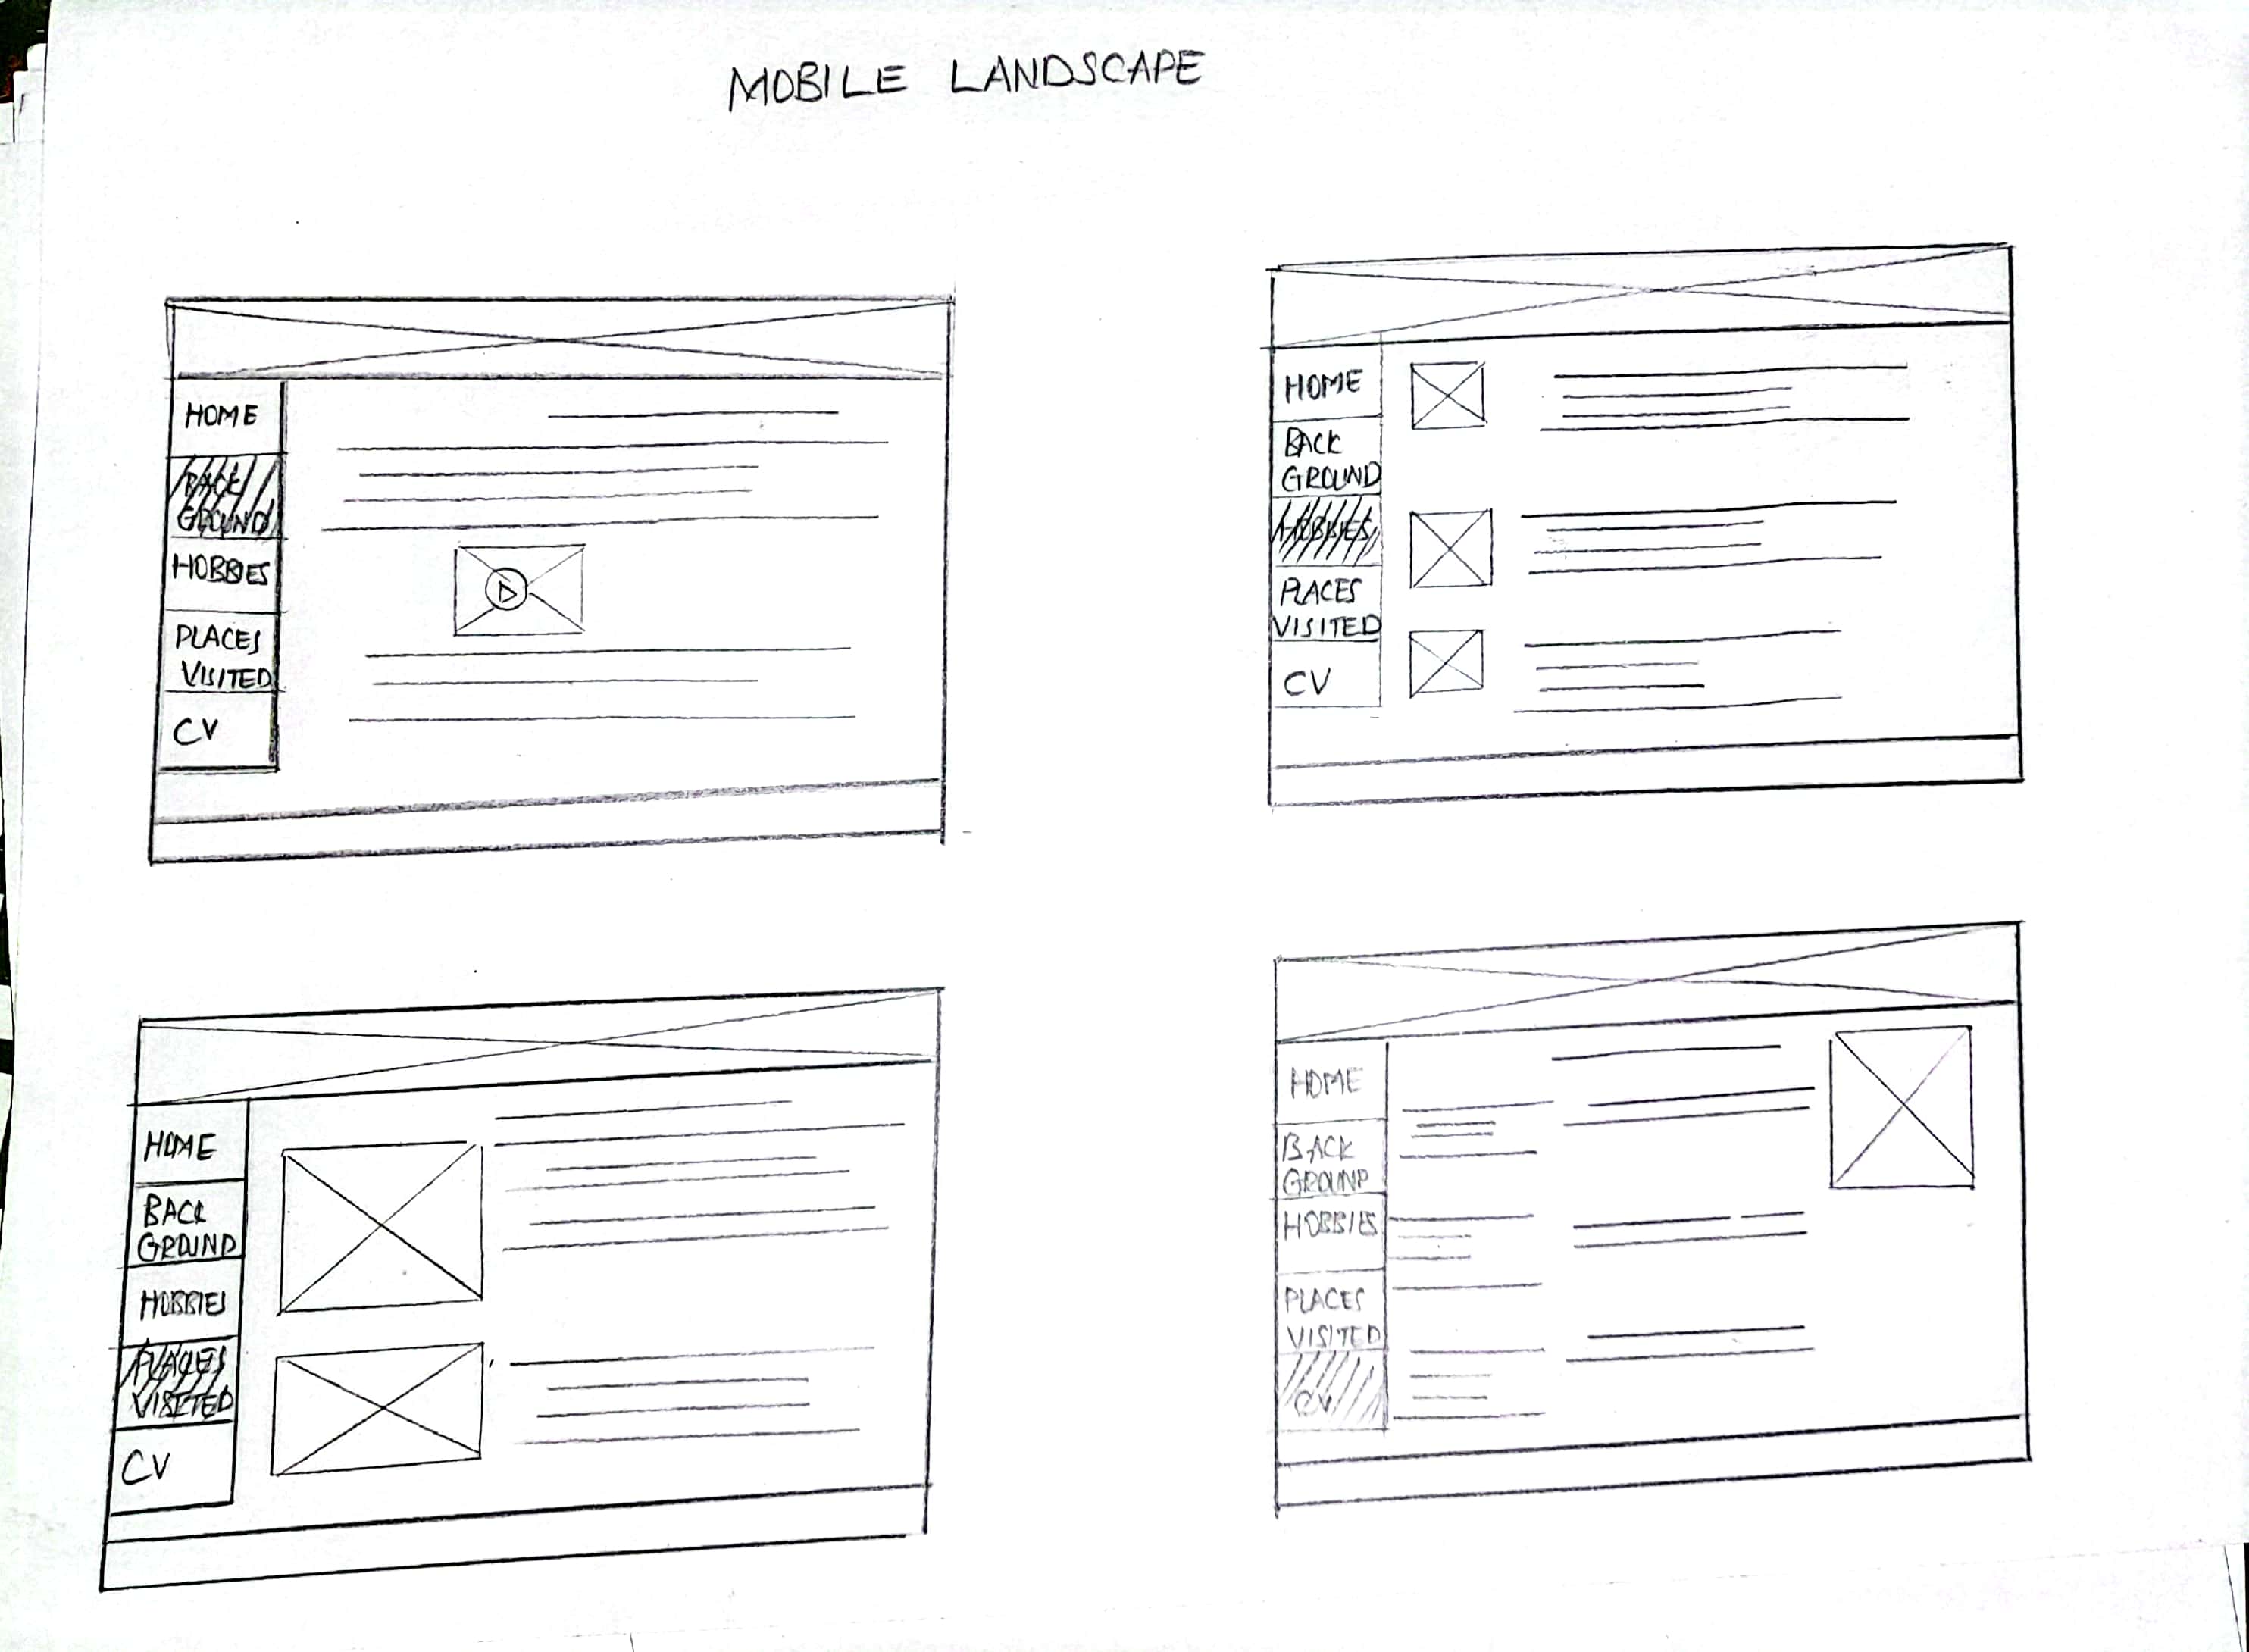 MOBILE LANDSCAPE
HOME
BACK
GROUND
HOBBIES
PLACES
VISITED
CV
HOME
BACK
GROUND
HOBBIES
PLACES
VISITED
CV
HOME
BACK
GROUND
HOBBIES
PLACES
VISITED
CV
HOME
BACK
GROUND
HOBBIES
PLACES
VISITED
CV